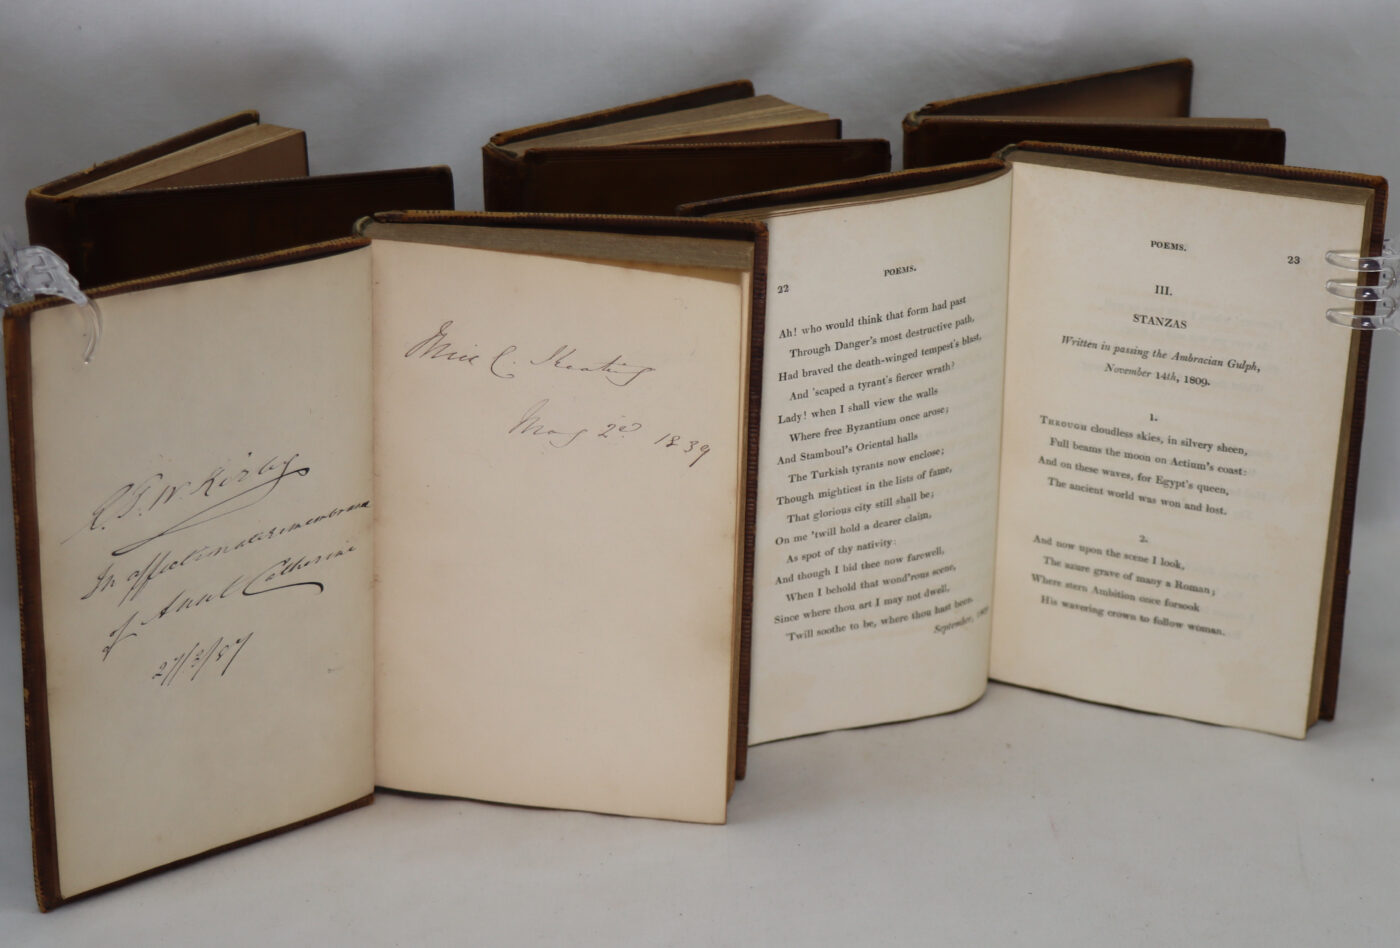 R. F. W. Kirby
In affectionate remembrance
of Aunt Catherine
27/3/57
Miss C. Keating
May 2d 1839
22
POEMS.
Ah! who would think that form had past
Through Danger's most destructive path,
Had braved the death-winged tempest's blast,
And 'scaped a tyrant's fiercer wrath?
Lady! when I shall view the walls
Where free Byzantium once arose;
And Stamboul's Oriental halls
The Turkish tyrants now enclose;
Though mightiest in the lists of fame,
That glorious city still shall be;
On me 'twill hold a dearer claim,
As spot of thy nativity:
And though I bid thee now farewell,
When I behold that wond'rous scene,
Since where thou art I may not dwell,
'Twill soothe to be, where thou hast been.
September,
POEMS.
23
III.
STANZAS
Written in passing the Ambracian Gulph,
November 14th, 1809.
1.
THROUGH cloudless skies, in silvery sheen,
Full beams the moon on Actium's coast:
And on these waves, for Egypt's queen,
The ancient world was won and lost.
2.
And now upon the scene I look,
The azure grave of many a Roman;
Where stern Ambition once forsook
His wavering crown to follow woman.